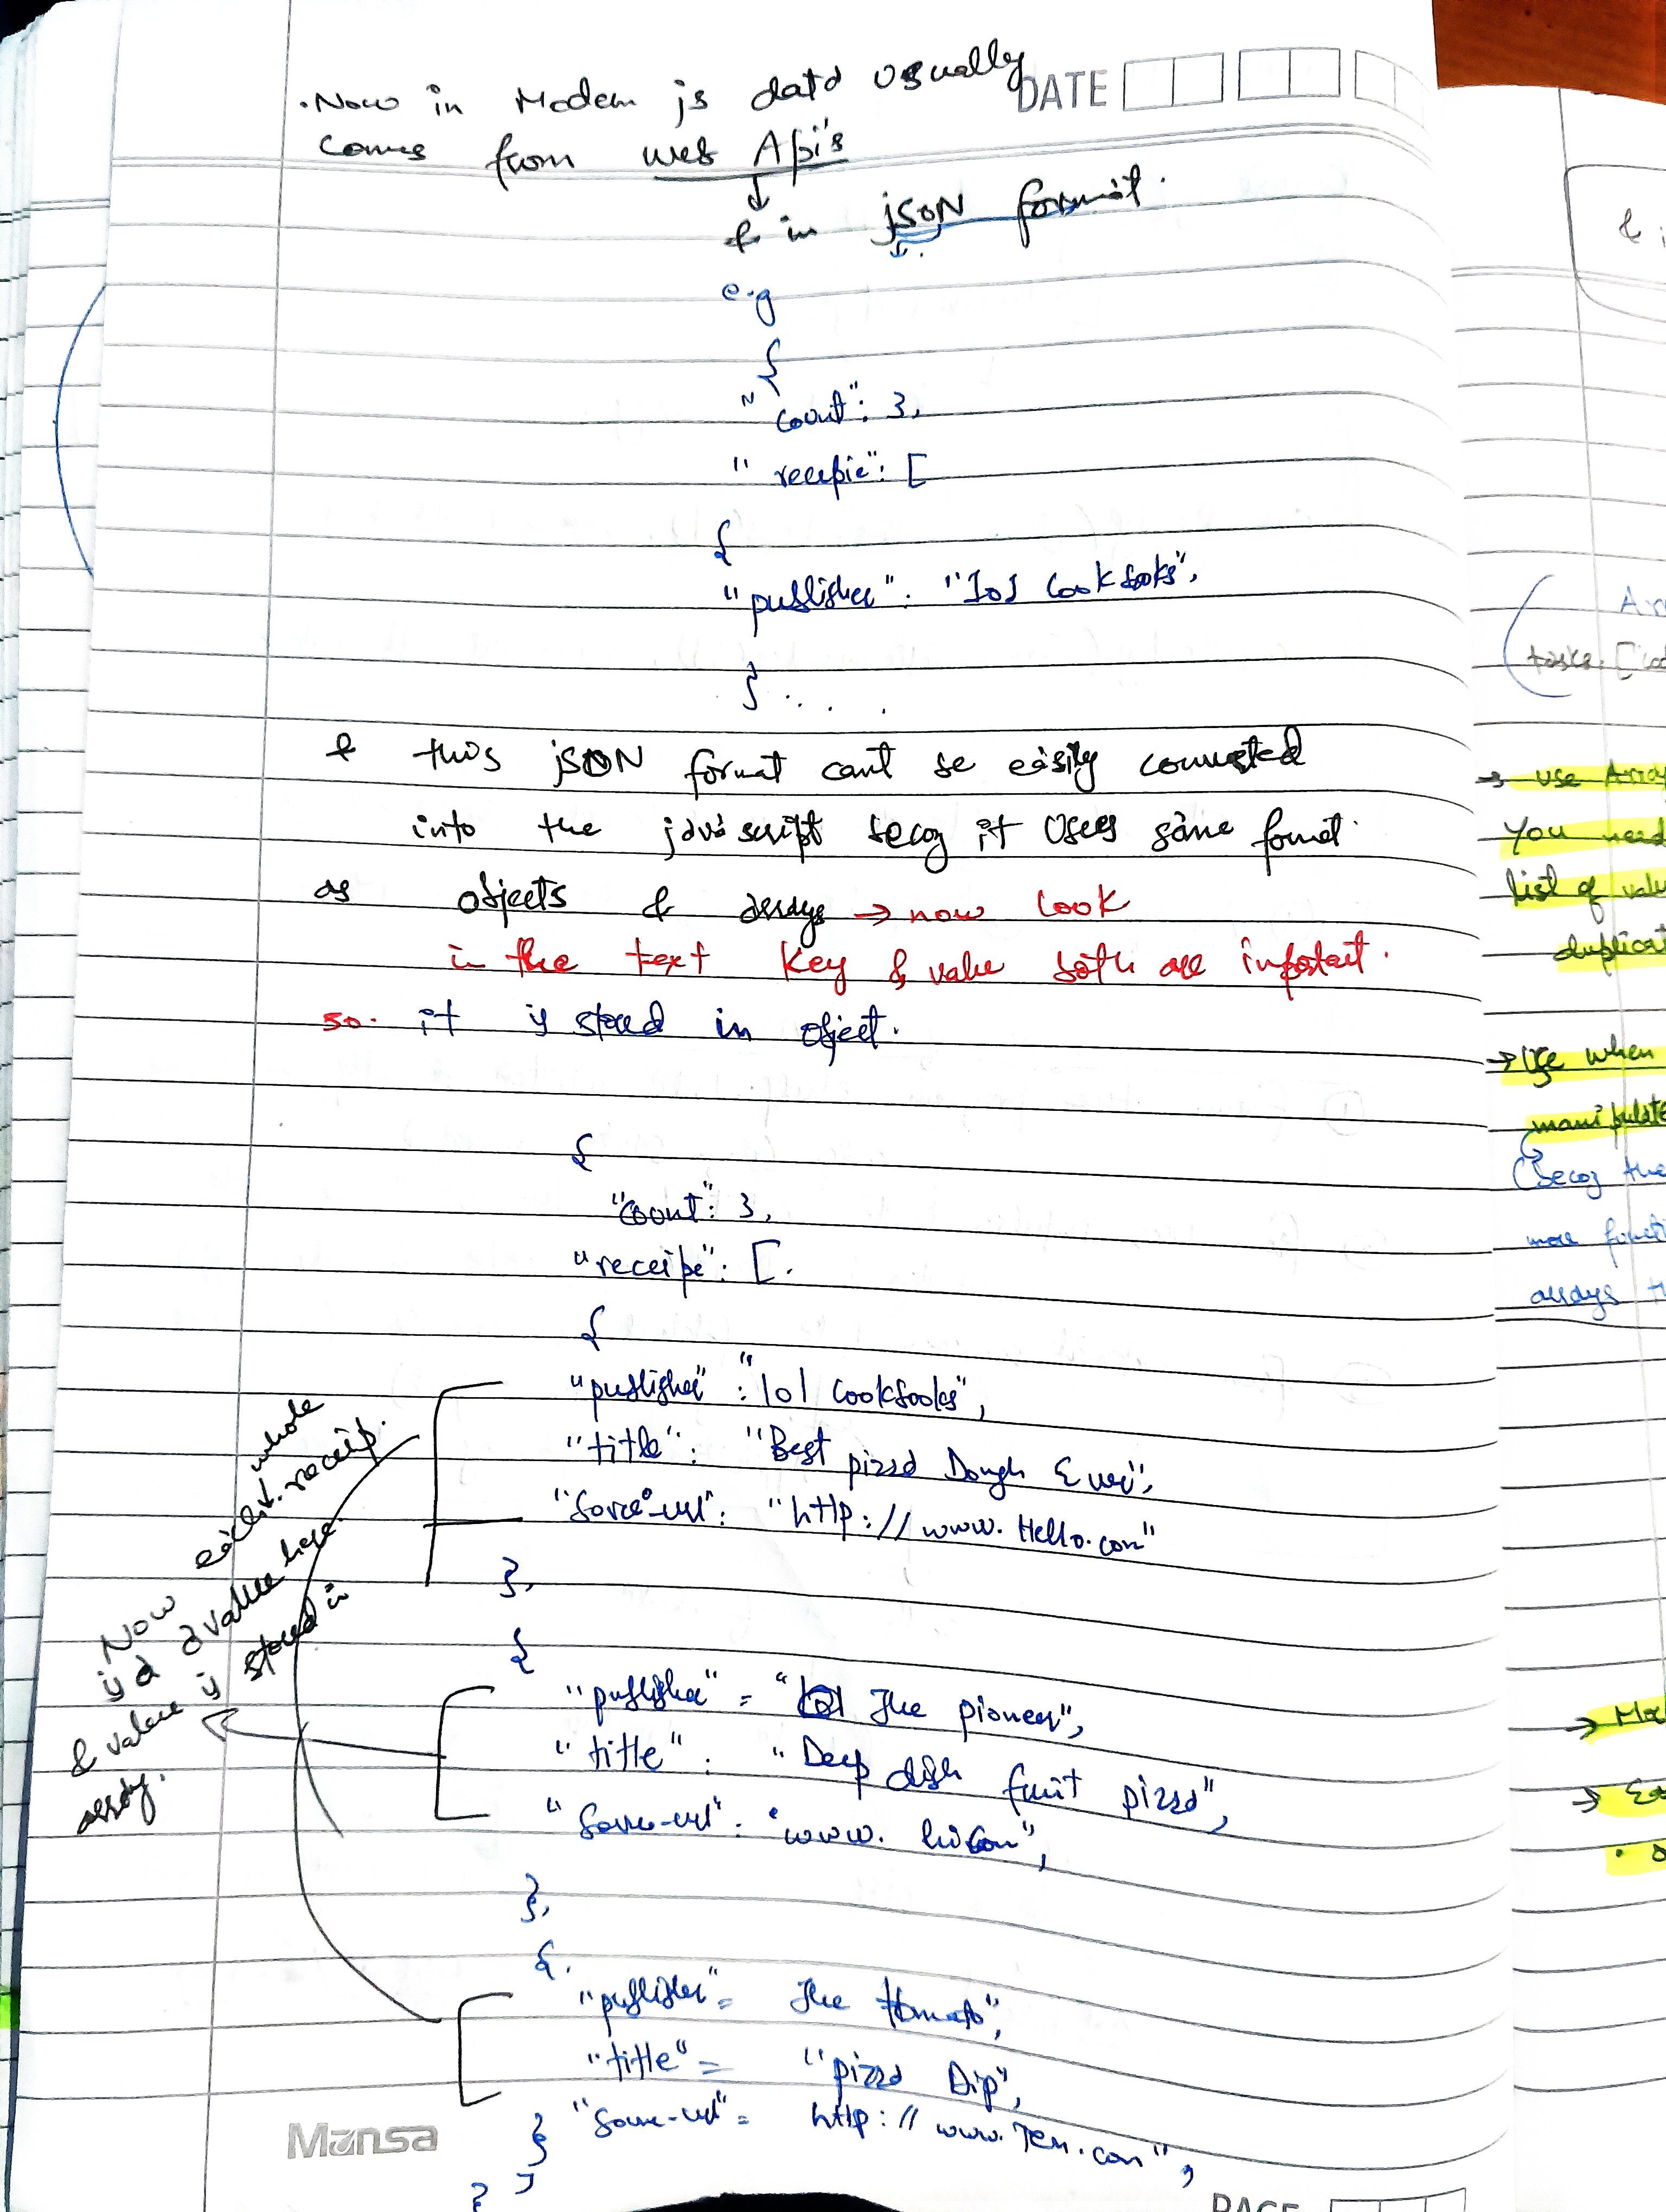 DATE
. Now in Modern js data usually
comes from web Api's
↓
& in JSON format.
e.g
{
" count": 3,
" recepie": [
{
"publisher": "101 Cookbooks",
} . . .
& this JSON format can't be easily converted
into the javascript becoz it uses same format.
as objects & arrays → now look
in the text key & value both are important.
so. it is stored in object.
{
"count": 3,
"receipe": [.
{
"publisher": "101 Cookbooks",
"title": "Best pizza Dough Ever",
"Source-url": "http://www.Hello.com"
},
{
"publisher" = " The pioneer",
"title": "Deep dish fruit pizza",
"Source-url": "www. hi.com",
},
{.
"publisher" = The tomato",
"title" = "pizza Dip",
"Source-url" = http://www.Ten.com",
}
]
}
Now each whole receip.
is a a value here
& value is stored in
array.
Mansa
PAGE
&
Arr
tasks. [
→ use Array
You need
list of valu
duplicat
→ Use when
manipulate
(becoz the
more functi
arrays th
→ Ma
→ Ea